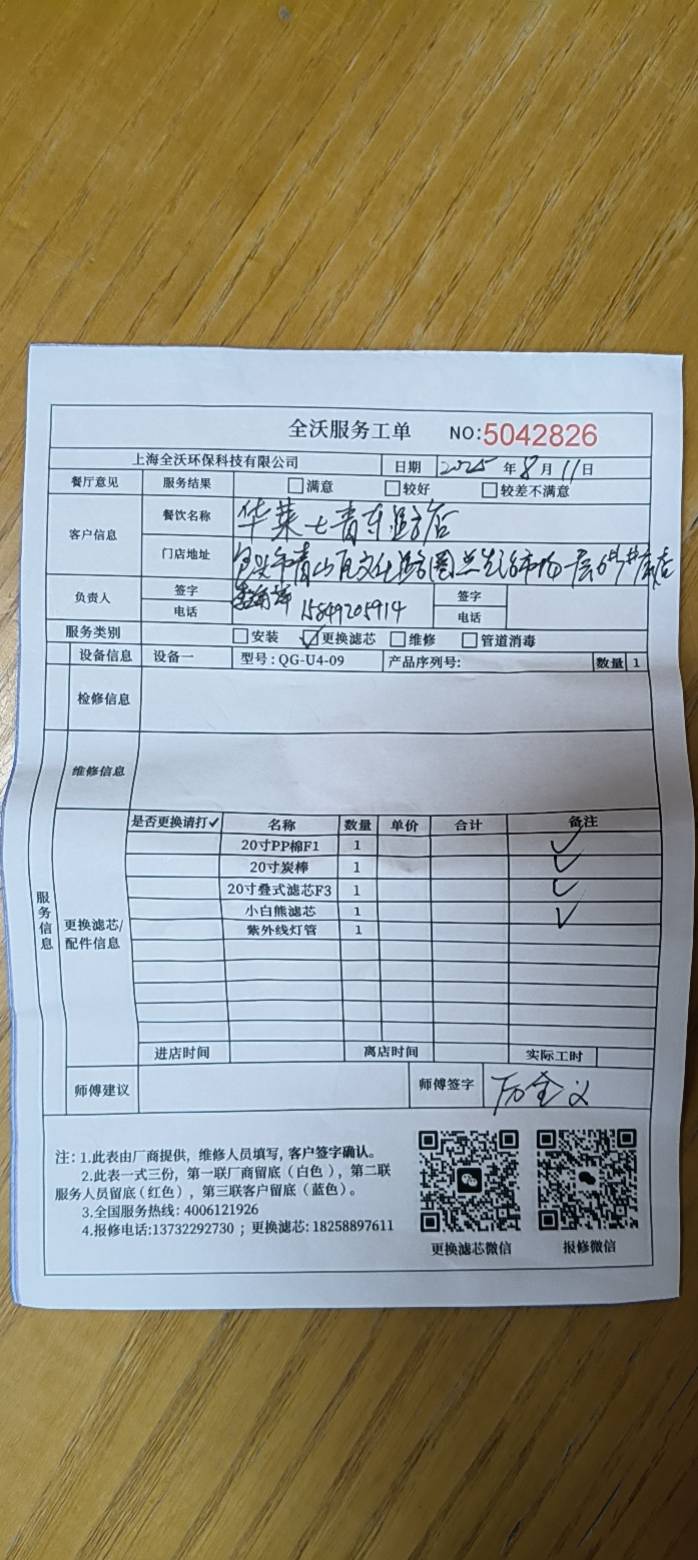 全沃服务工单 NO:5042826
上海全沃环保科技有限公司 日期 2025年8月11日
餐厅意见 服务结果 满意 较好 较差不满意
客户信息 餐饮名称 华莱士青东路店
门店地址 青山区文化路
负责人 签字 签字
电话 15849205914 电话
服务类别 安装 更换滤芯 维修 管道消毒
设备信息 设备一 型号:QG-U4-09 产品序列号: 数量 1
检修信息
维修信息
服务信息
更换滤芯/配件信息
是否更换请打✓ 名称 数量 单价 合计 备注
20寸PP棉F1 1 ✓
20寸炭棒 1 ✓
20寸叠式滤芯F3 1 ✓
小白熊滤芯 1 ✓
紫外线灯管 1
进店时间 离店时间 实际工时
师傅建议 师傅签字
注:1.此表由厂商提供,维修人员填写,客户签字确认。
2.此表一式三份,第一联厂商留底(白色),第二联
服务人员留底(红色),第三联客户留底(蓝色)。
3.全国服务热线:4006121926
4.报修电话:13732292730;更换滤芯:18258897611
更换滤芯微信 报修微信